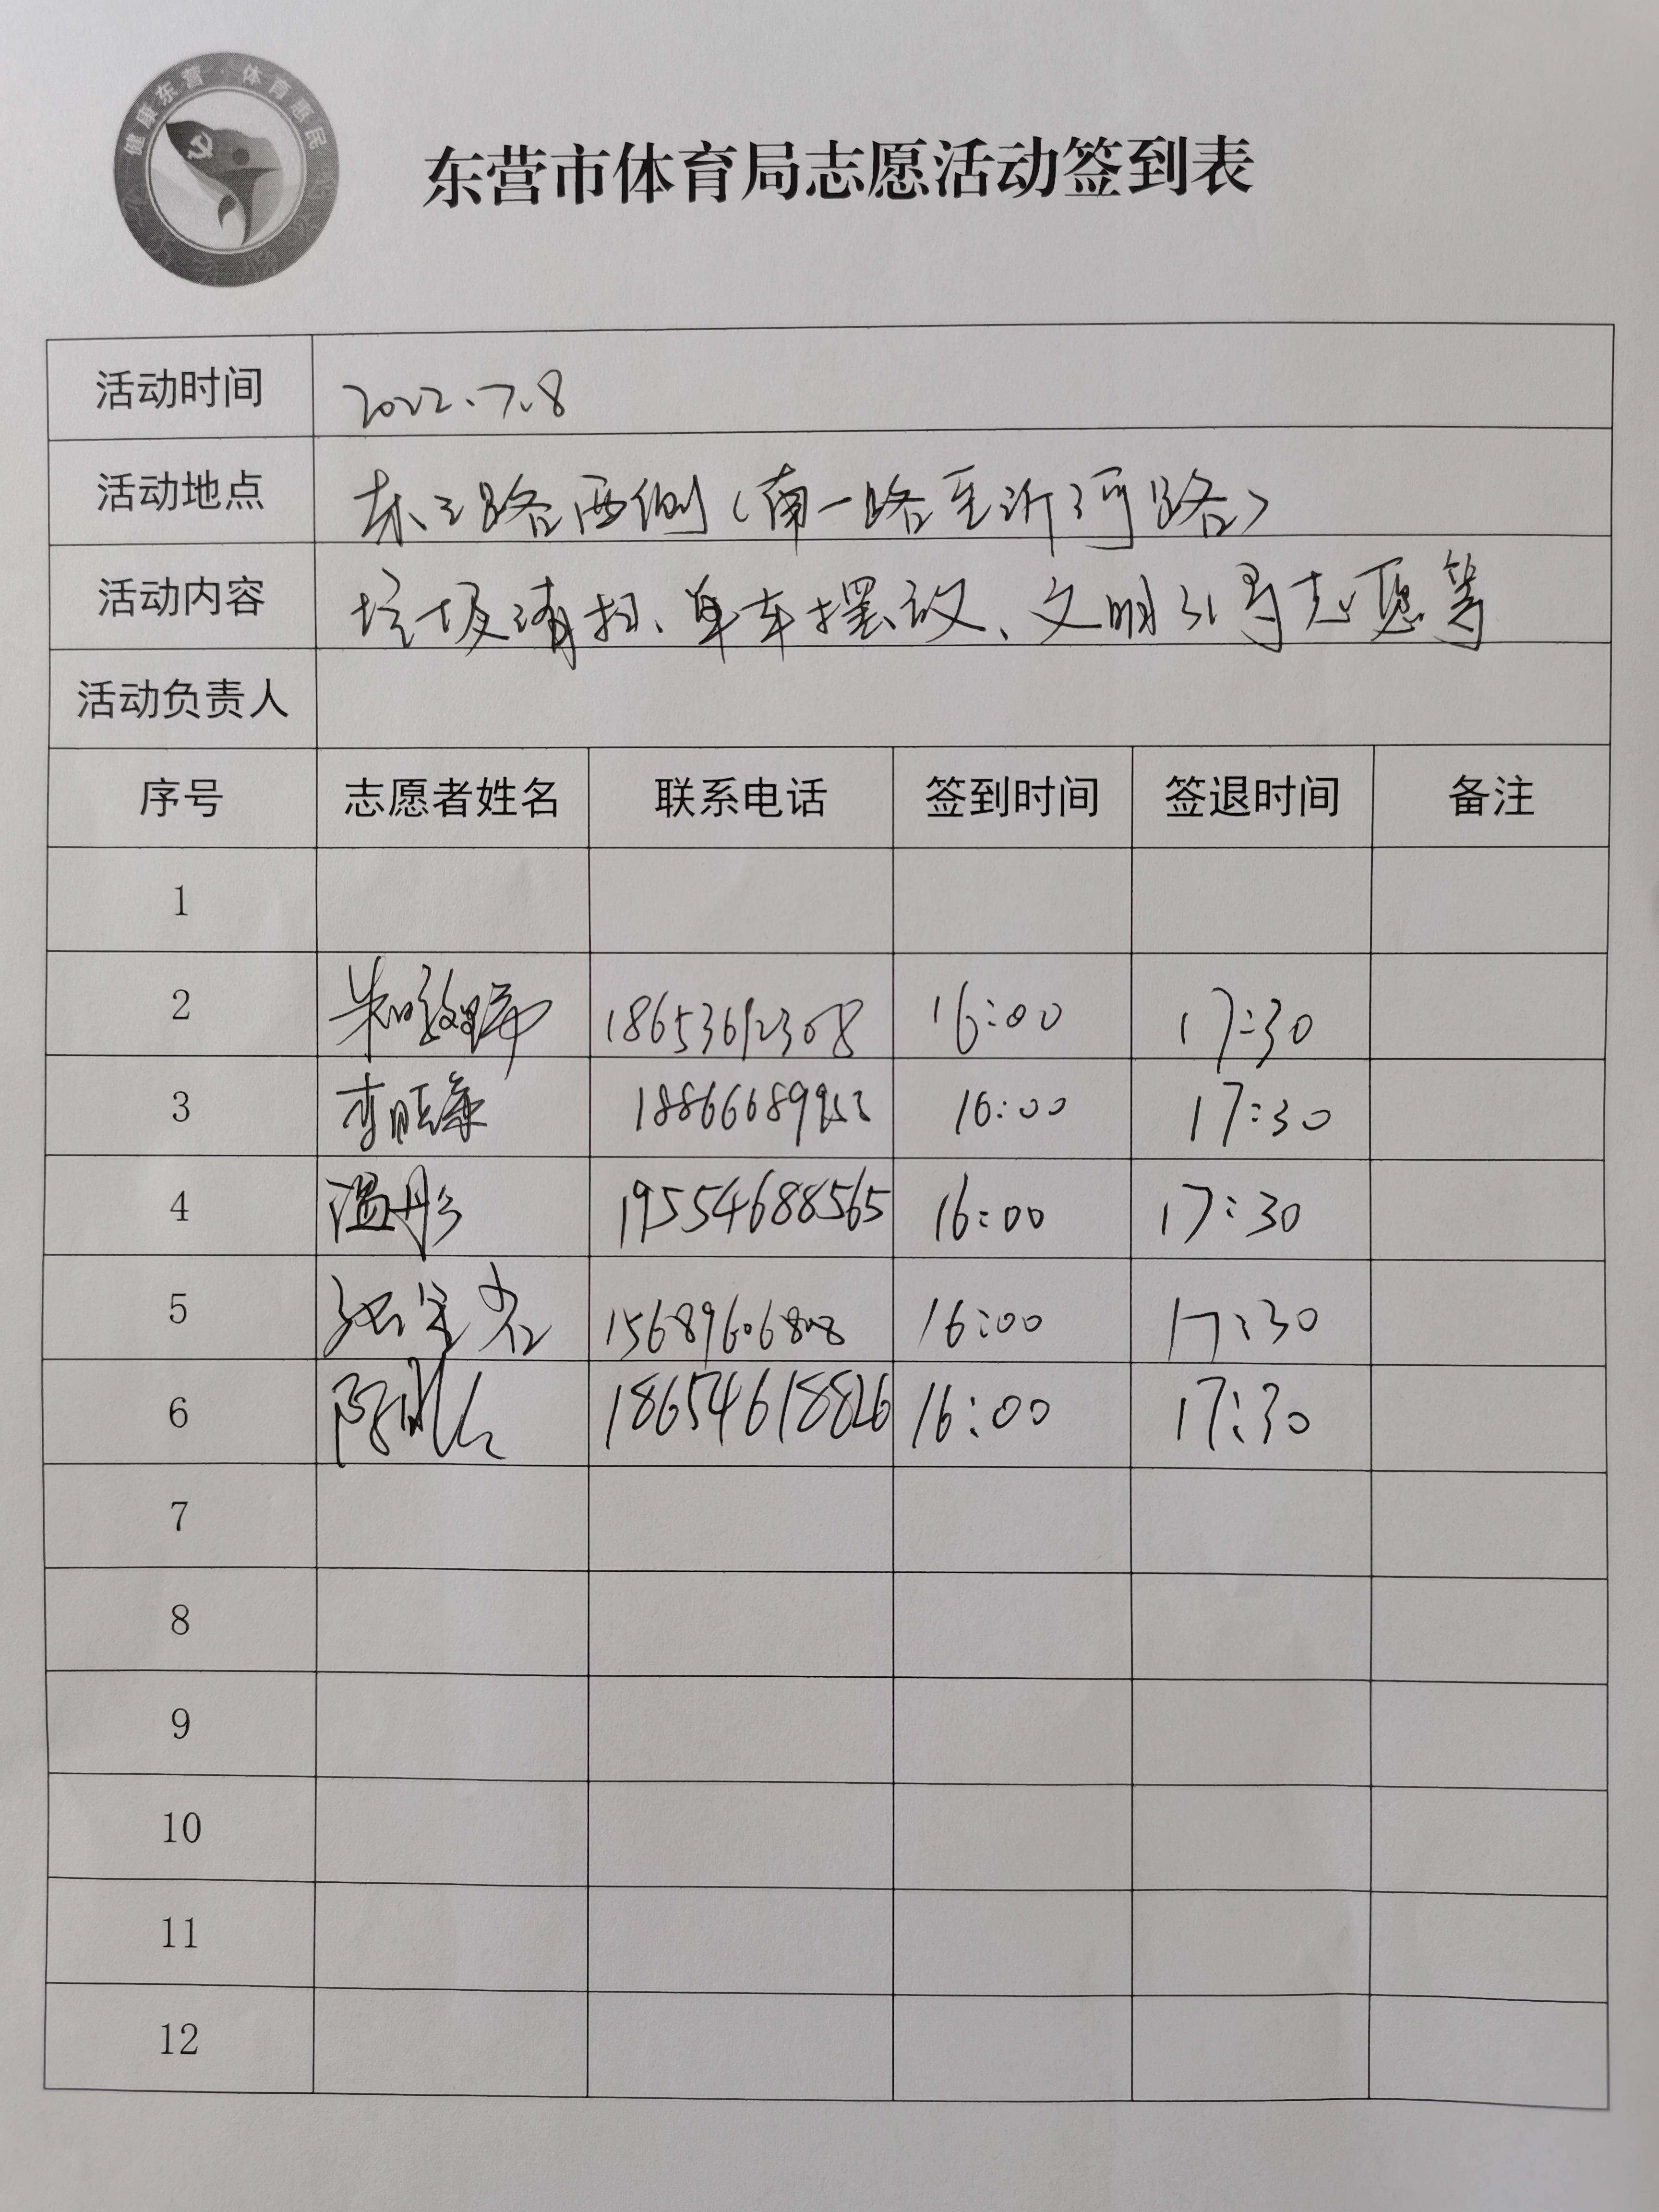 健康东营·体育惠民
东营市体育局志愿活动签到表
活动时间 2022.7.8
活动地点 东三路西侧(南一路至沂河路)
活动内容 垃圾清扫、单车摆放、文明引导志愿等
活动负责人
序号 志愿者姓名 联系电话 签到时间 签退时间 备注
1
2 18653692308 16:00 17:30
3 16:00 17:30
4 温彤 19554688565 16:00 17:30
5 15689606808 16:00 17:30
6 18654618826 16:00 17:30
7
8
9
10
11
12